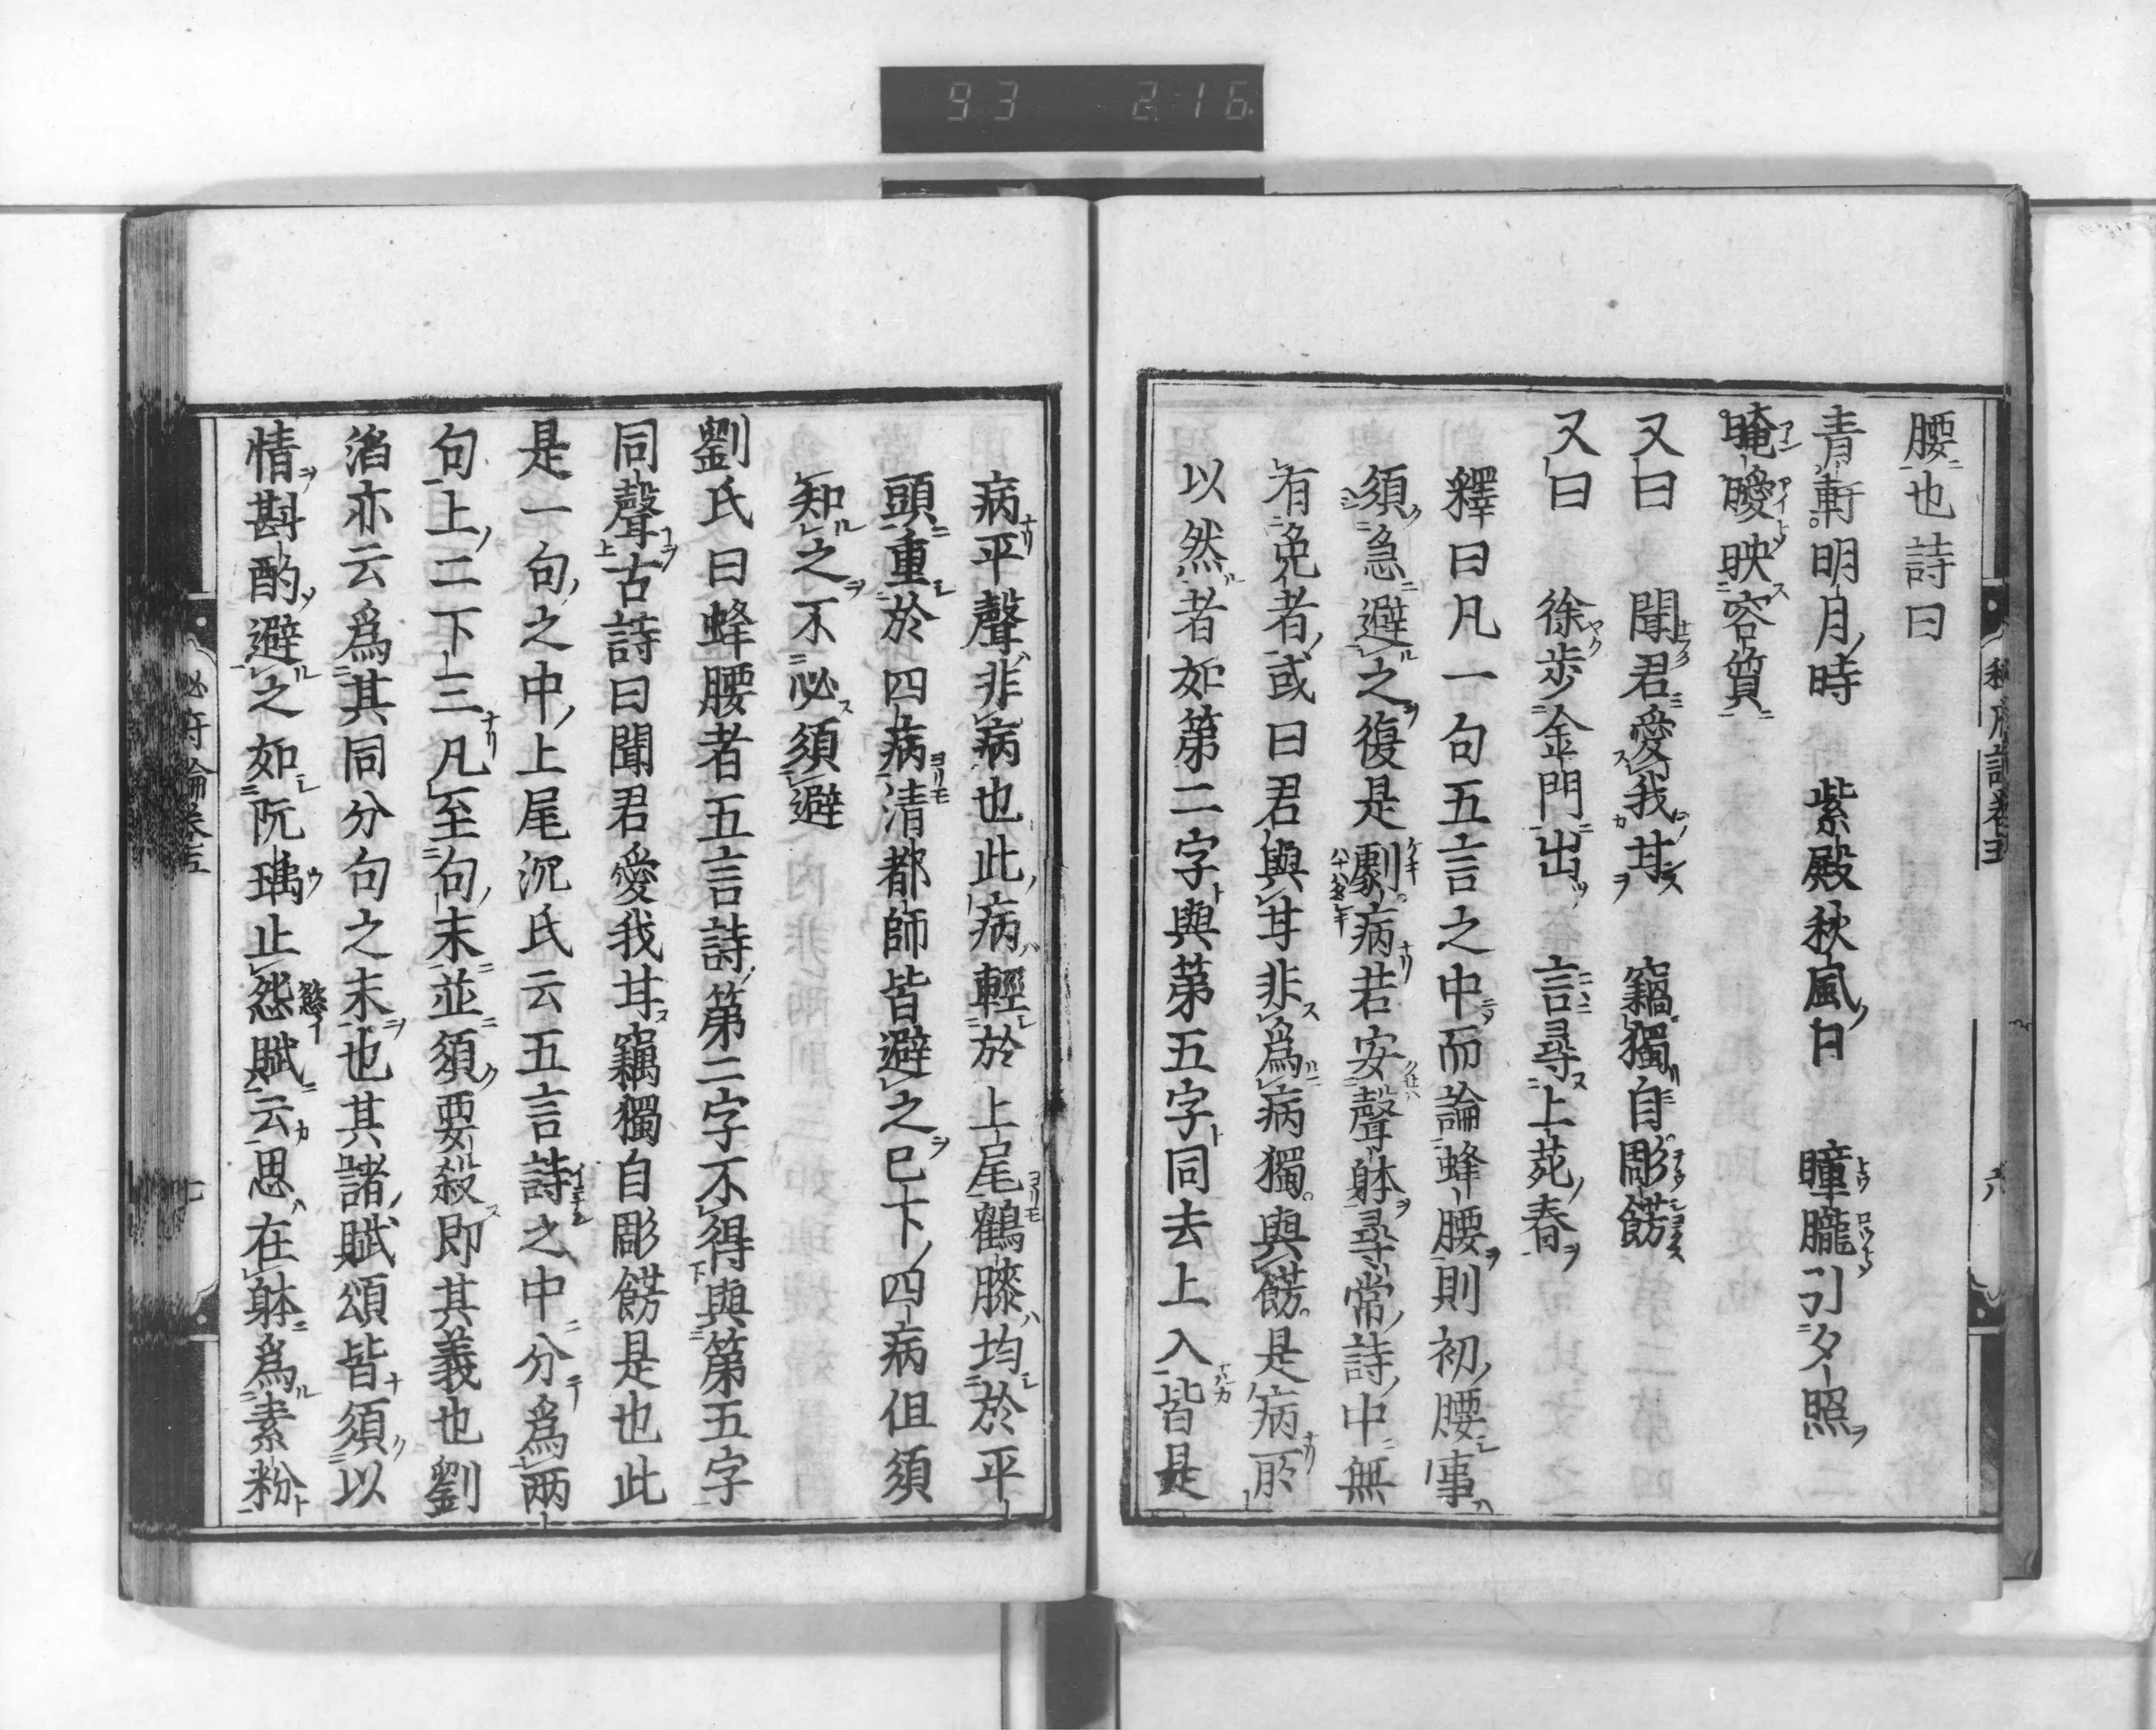 93 216
腰也詩曰
青軒明月時　紫殿秋風日　曈朧引夕照
晻曖映容質
又曰　聞君愛我甘　竊獨自彫餝
又曰　徐步金門出　言尋上苑春
釋曰凡一句五言之中而論蜂腰則初腰事
須急避之復是劇病若安聲躰尋常詩中無
有免者或曰君與甘非爲病獨與餝是病所
以然者如第二字與第五字同去上入皆是
病平聲非病也此病輕於上尾鶴膝均於平
頭重於四病清都師皆避之已下四病但須
知之不必須避
劉氏曰蜂腰者五言詩第二字不得與第五字
同聲古詩曰聞君愛我甘竊獨自彫餝是也此
是一句之中上尾沉氏云五言詩之中分爲兩
句上二下三凡至句末並須要殺即其義也劉
滔亦云爲其同分句之末也其諸賦頌皆須以
情斟酌避之如阮瑀止怨賦云思在躰爲素粉